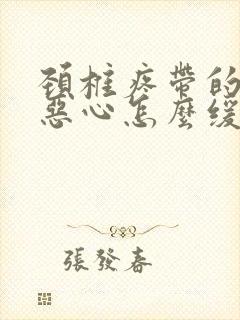 頚椎疼帶的
惡心怎麼緩
張發春